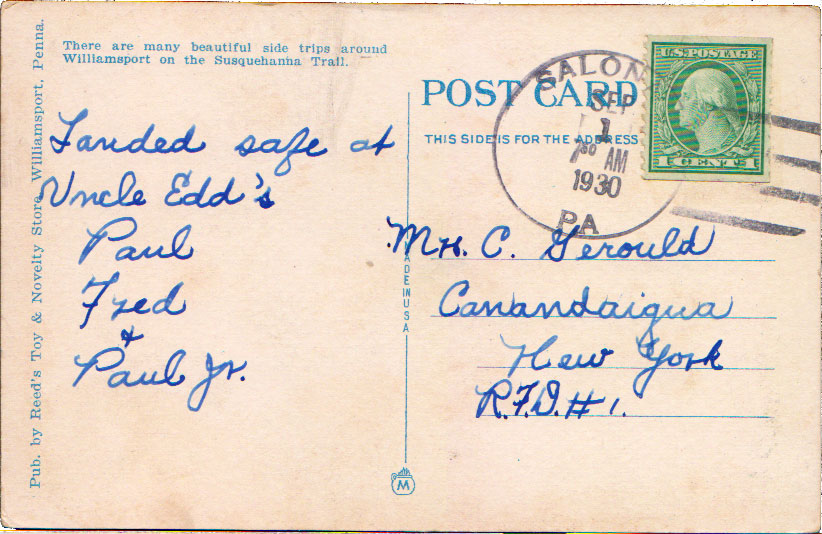 There are many beautiful side trips around
Williamsport on the Susquehanna Trail.
Pub. by Reed's Toy & Novelty Store, Williamsport, Penna.
Landed safe at
Uncle Edd's
Paul
Fred
&
Paul Jr.
MADE IN USA
M
POST CARD
THIS SIDE IS FOR THE ADDRESS
SALONA
SEP
1
7 30 AM
1930
PA
U.S. POSTAGE
1 CENT 1
Mr. C. Gerould
Canandaigua
New York
R.F.D. # 1.